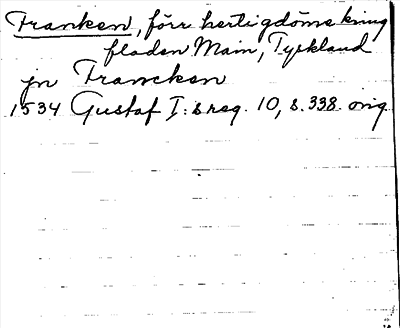 Franken, förr hertigdöme kring
floden Main, Tyskland
jn Francken
1534 Gustaf I:s reg. 10, s. 338. orig.